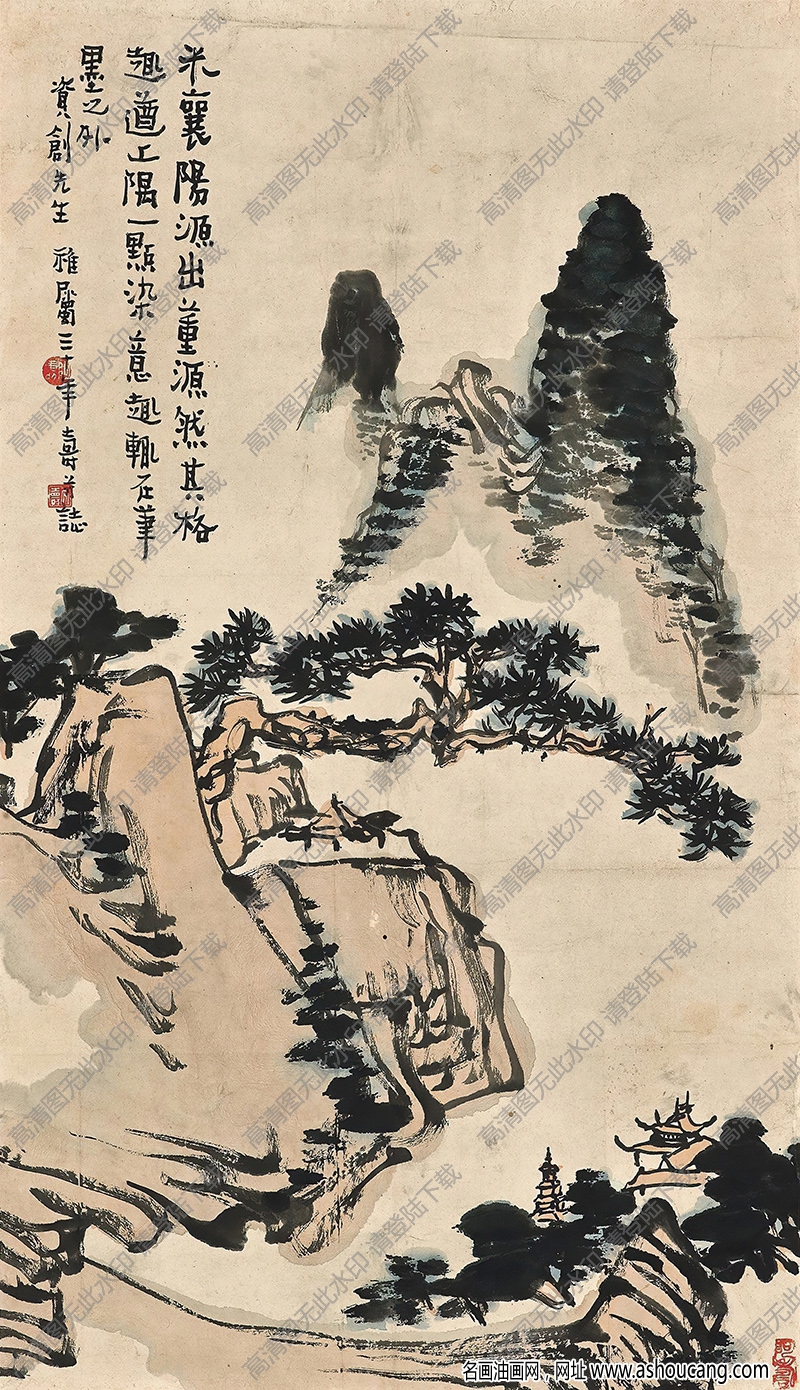 米襄陽源出董源然其格
趣遒上隅一點染意趣輒在筆
墨之外
資創先生 雅屬三十年壽者誌
高清图无此水印 请登陆下载
名画油画网，网址 www.ashoucang.com